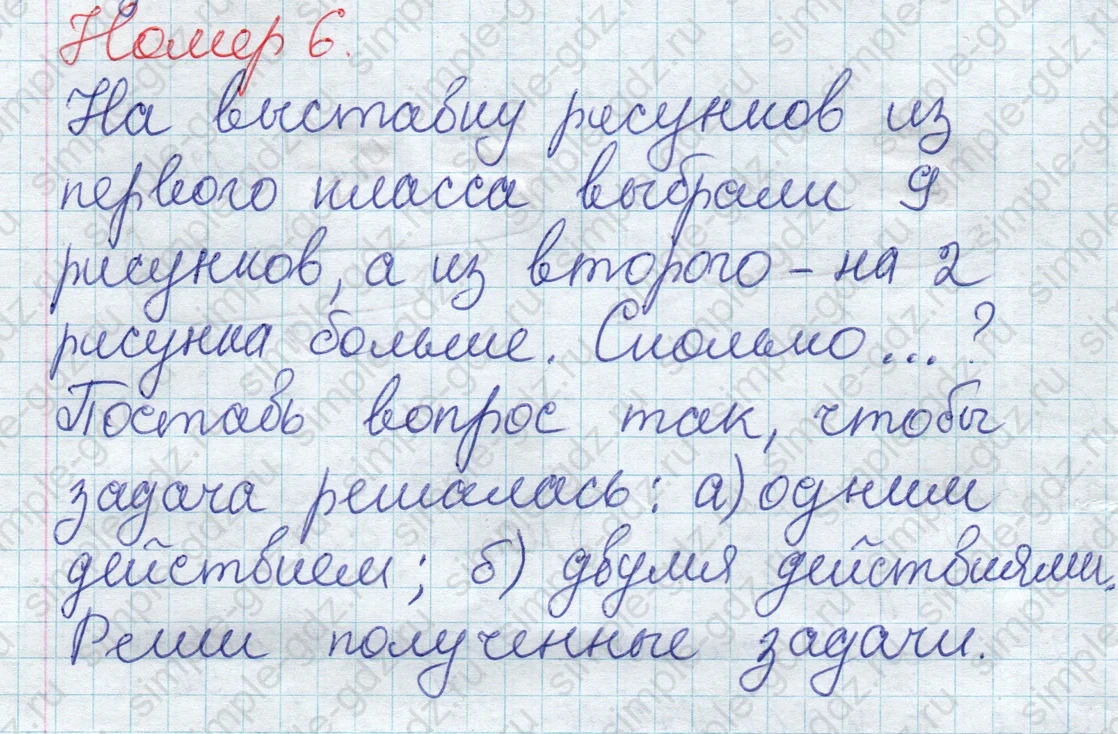 Номер 6.
На выставку рисунков из
первого класса выбрали 9
рисунков, а из второго – на 2
рисунка больше. Сколько...?
Поставь вопрос так, чтобы
задача решалась: а) одним
действием; б) двумя действиями.
Реши полученные задачи.
simple-gdz.ru